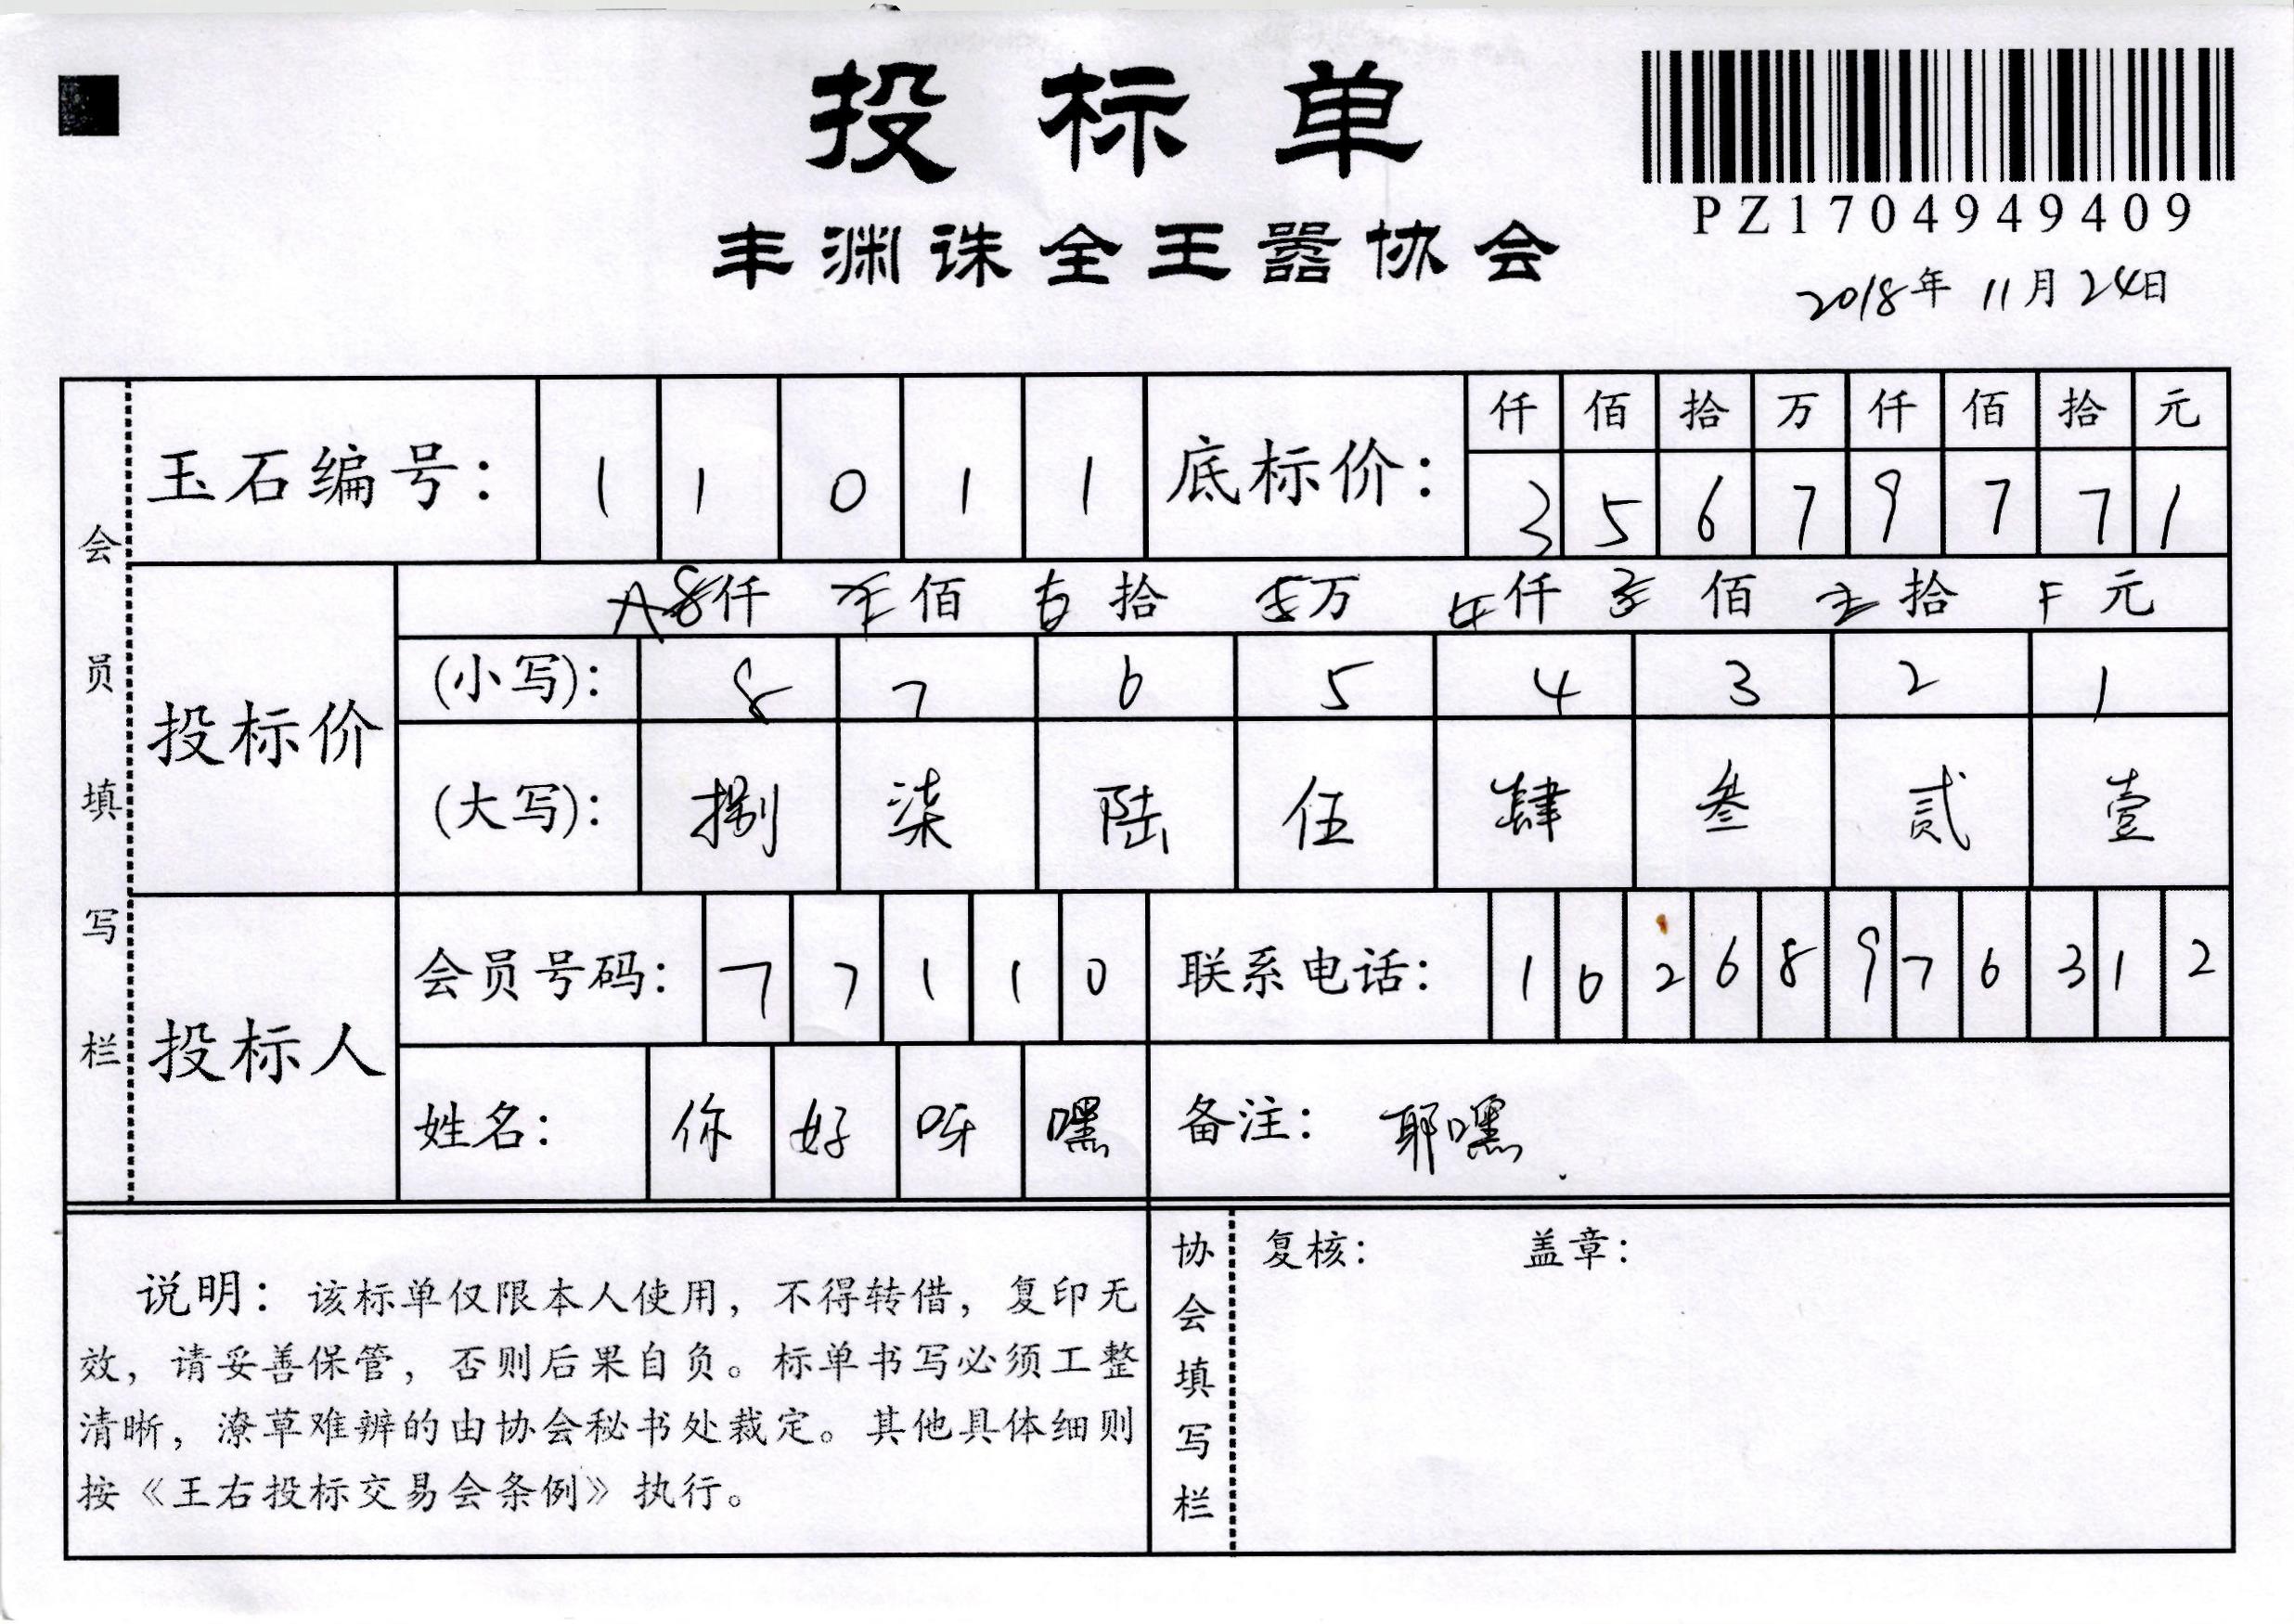 投标单
PZ1704949409
丰渊诛全王嚣协会
2018年 11月24日
会员填写栏
玉石编号: 1 1 0 1 1
底标价: 仟 佰 拾 万 仟 佰 拾 元
3 5 6 7 9 7 7 1
投标价
仟 佰 拾 万 仟 佰 拾 元
(小写): 8 7 6 5 4 3 2 1
(大写): 捌 柒 陆 伍 肆 叁 贰 壹
投标人
会员号码: 7 7 1 1 0
联系电话: 1 6 2 6 8 9 7 6 3 1 2
姓名: 你 好 呀 嘿
备注: 耶嘿
说明: 该标单仅限本人使用, 不得转借, 复印无
效, 请妥善保管, 否则后果自负。标单书写必须工整
清晰, 潦草难辨的由协会秘书处裁定。其他具体细则
按《王右投标交易会条例》执行。
协会填写栏
复核: 盖章: